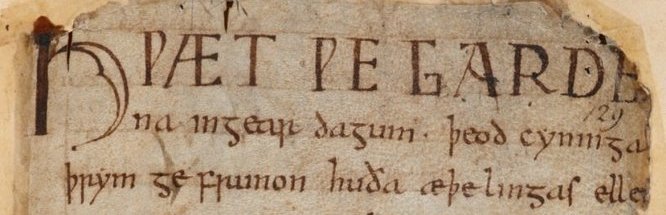 HǷÆT ǷE GARDE
na in gear dagum · þeod cyninga
þrym ge frunon huða æþelingas elle
129